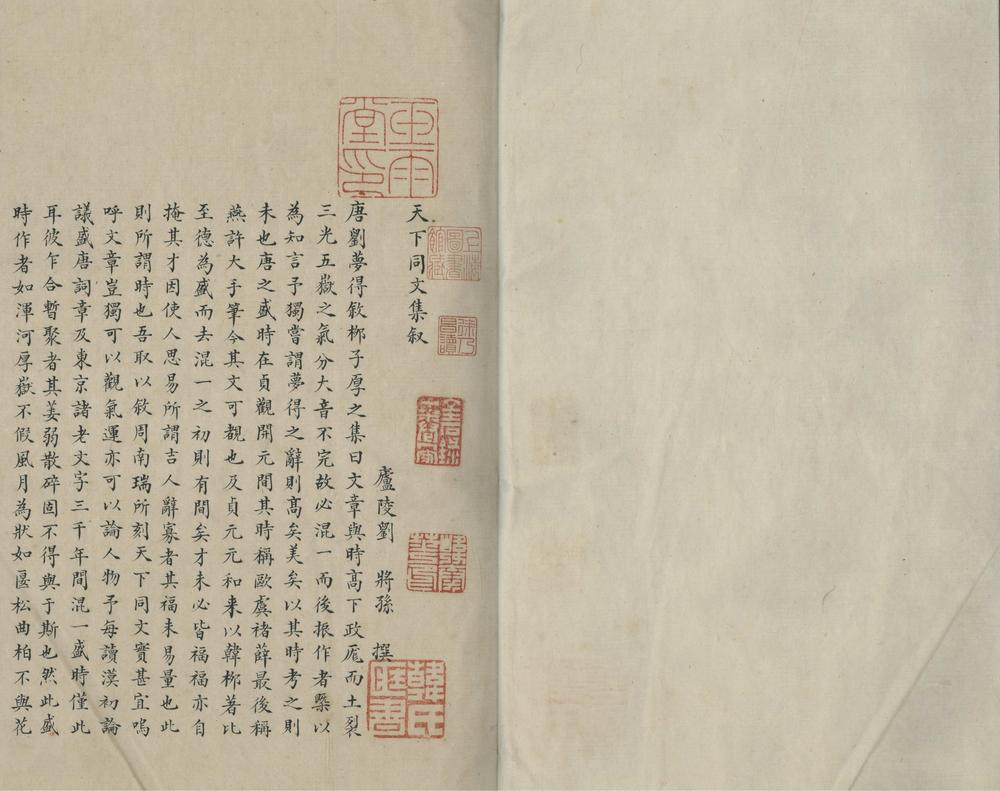 天下同文集叙
廬陵劉將孫撰
唐劉夢得敘栁子厚之集曰文章與時髙下政厖而土裂
三光五嶽之氣分大音不完故必混一而後振作者槩以
為知言予獨嘗謂夢得之辭則髙矣美矣以其時考之則
未也唐之盛時在貞觀開元間其時稱歐虞褚薛最後稱
燕許大手筆今其文可覩也及貞元元和来以韓栁著比
至德為盛而去混一之初則有間矣才未必皆福福亦自
掩其才因使人思易所謂吉人辭寡者其福未易量也此
則所謂時也吾取以敘周南瑞所刻天下同文實甚宜嗚
呼文章豈獨可以觀氣運亦可以論人物予每讀漢初論
議盛唐詞章及東京諸老文字三千年間混一盛時僅此
耳彼乍合暫聚者其萎弱散碎固不得與于斯也然此盛
時作者如渾河厚嶽不假風月為狀如偃松曲柏不與花
上海圖書館藏
韓氏